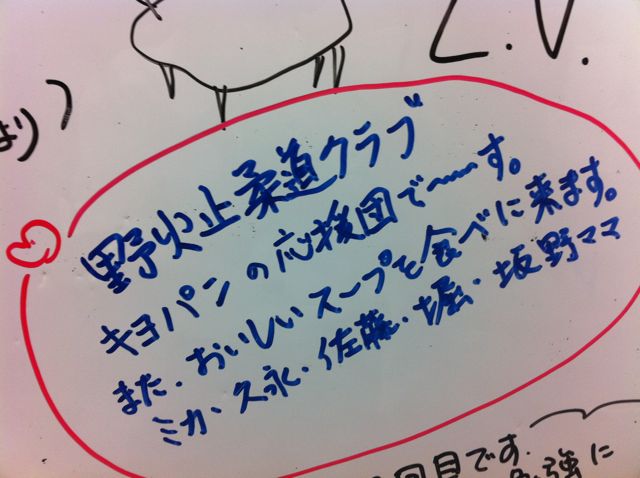 L.V.
より)
野火止柔道クラブ
キヨパンの応援団で〜〜す。
また、おいしいスープを食べに来ます。
ミカ・久永・佐藤・堀・坂野ママ
回目です。
強に